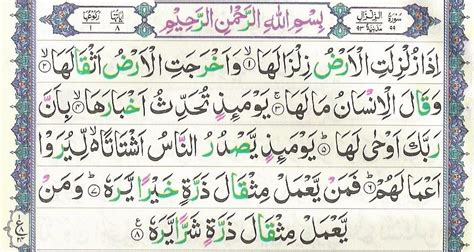 سورة الزلزال مدنية ٩٣ بسم الله الرحمن الرحيم اياتها ٨ ركوعها ١
اِذَا زُلْزِلَتِ الْاَرْضُ زِلْزَالَهَا ۙ﴿۱﴾ وَاَخْرَجَتِ الْاَرْضُ اَثْقَالَهَا ۙ﴿۲﴾
وَقَالَ الْاِنْسَانُ مَا لَهَا ۚ﴿۳﴾ يَوْمَئِذٍ تُحَدِّثُ اَخْبَارَهَا ۙ﴿۴﴾ بِاَنَّ
رَبَّكَ اَوْحٰى لَهَا ؕ﴿۵﴾ يَوْمَئِذٍ يَّصْدُرُ النَّاسُ اَشْتَاتًا ۙ۬ لِّيُرَوْا
اَعْمَالَهُمْ ؕ﴿۶﴾ فَمَنْ يَّعْمَلْ مِثْقَالَ ذَرَّةٍ خَيْرًا يَّرَهٗ ؕ﴿۷﴾ وَمَنْ
يَّعْمَلْ مِثْقَالَ ذَرَّةٍ شَرًّا يَّرَهٗ ﴿۸﴾